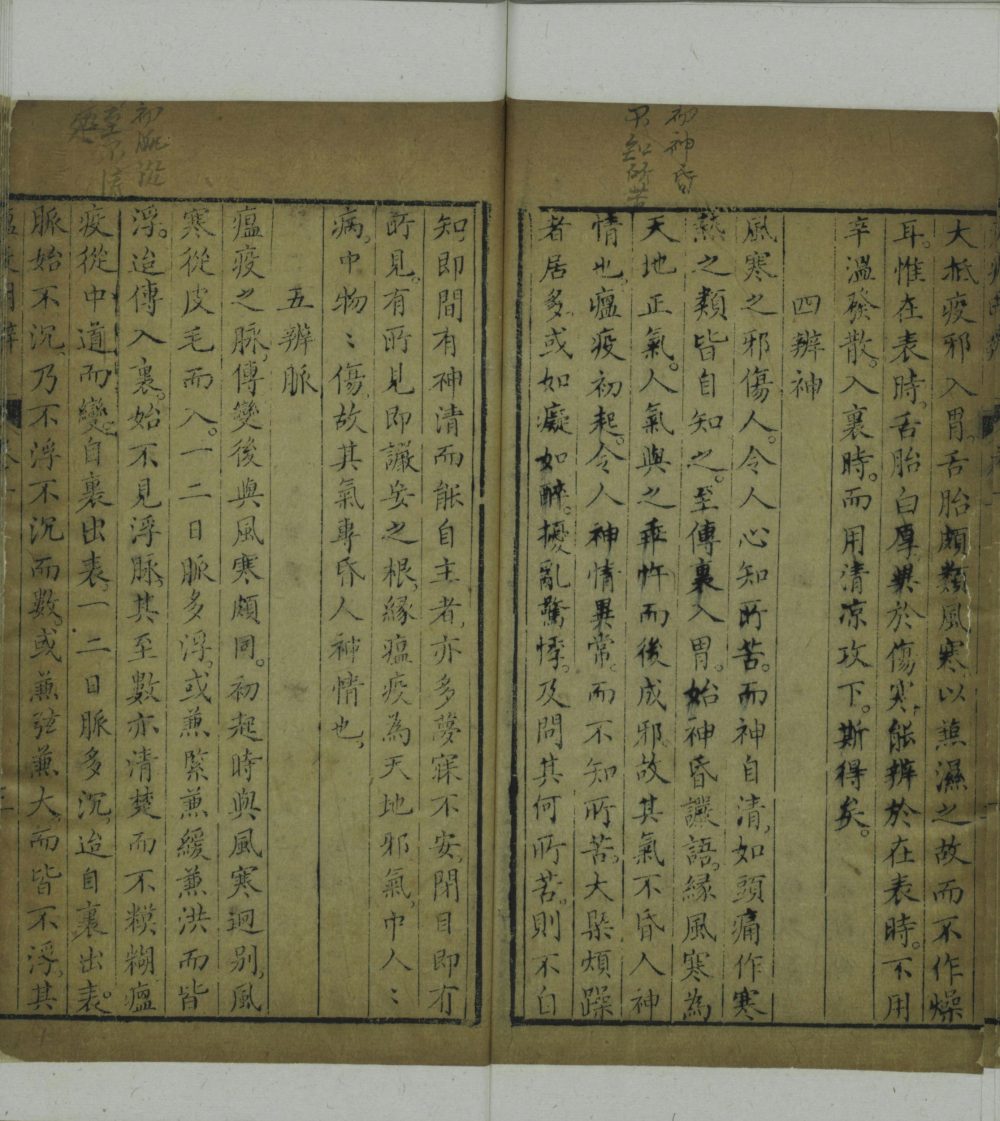 初神昏
不知所苦
大抵疫邪入胃。舌胎頗類風寒以兼濕之故而不作燥
耳。惟在表時。舌胎白厚異於傷寒。能辨於在表時。不用
辛溫發散。入裏時。而用清凉攻下。斯得矣。
四辨神
風寒之邪傷人。令人心知所苦。而神自清。如頭痛作寒
熱之類皆自知之。至傳裏入胃。始神昏讝語。緣風寒為
天地正氣。人氣與之乖忤而後成邪。故其氣不昏人神
情也。瘟疫初起。令人神情異常。而不知所苦。大槩煩躁
者居多。或如癡如醉。擾亂驚悸。及問其何所苦。則不自
初脈從
知即間有神清而能自主者。亦多夢寐不安。閉目即有
所見。有所見即讝妄之根。緣瘟疫為天地邪氣。中人〻
病。中物〻傷。故其氣專昏人神情也。
五辨脈
瘟疫之脉。傳變後與風寒頗同。初起時與風寒逈别。風
寒從皮毛而入。一二日脈多浮。或兼緊兼緩兼洪而皆
浮。迨傳入裏。始不見浮脉。其至數亦清楚而不糢糊瘟
疫從中道而變。自裏出表。一二日脈多沉。迨自裏出表。
脈始不沉。乃不浮不沉而數。或兼弦兼大。而皆不浮。其